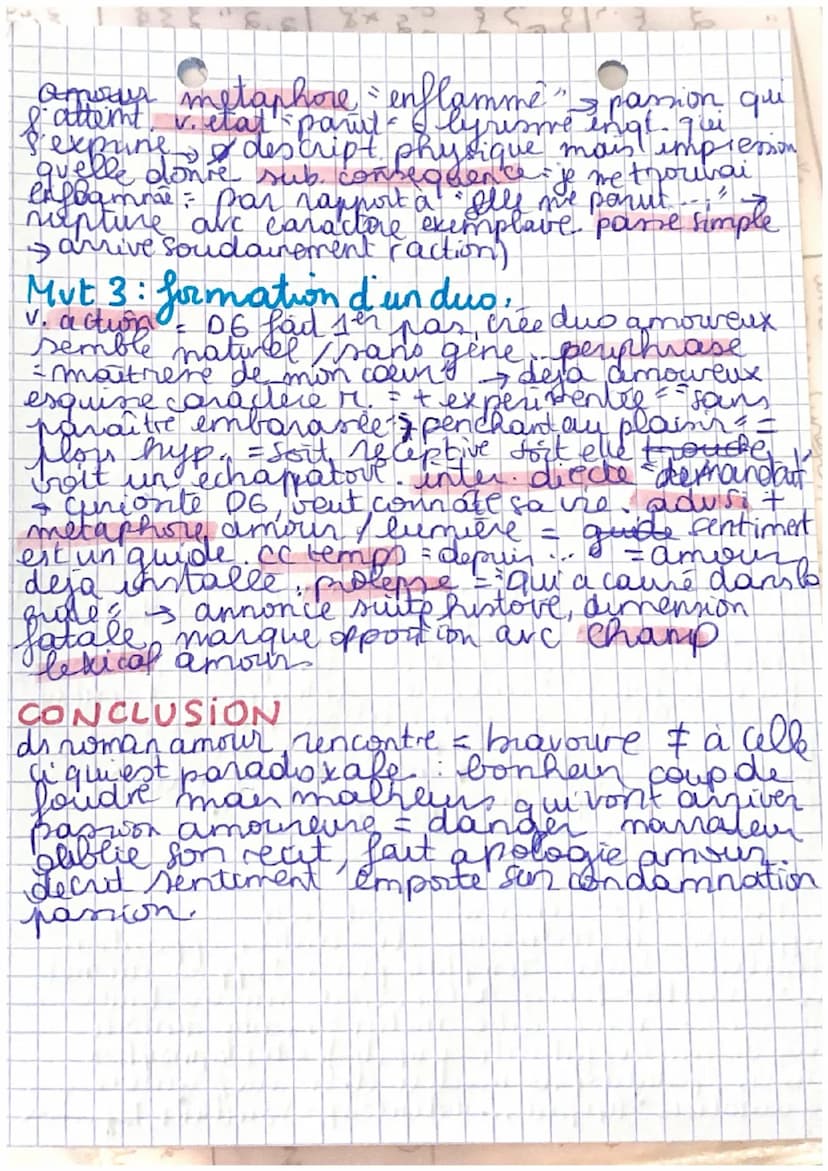 amour métaphore "enflammé" → passion qui
l'atteint. v. état "parut" = lyrisme ingt. qui
s'exprime → descript physique mais impression
qu'elle donne sub. conséquence = je me trouvai
enflammé = par rapport à "elle me parut..." →
rupture avc caractère exemplaire passe simple
→ arrive soudainement (action)
Mvt 3 : formation d'un duo.
v. action = DG fait 1er pas, crée duo amoureux
semble naturel / sans gêne. périphrase
= maîtresse de mon coeur → déjà amoureux
esquisse caractère M. = + expérimentée = "sans
paraître embarassée" → "penchant au plaisir" =
plsr hyp. = soit réceptive soit elle trouche
voit un échappatoir. inter. directe "demandai"
→ curiosité DG, veut connaître sa vie. adv si +
métaphore amour / lumière = guide sentiment
est un guide. CC temps = depuis ... = amour
déjà installée. prolepse = "qui a causé dans la
suite" → annonce suite histoire, dimension
fatale, marque opposition avc champ
lexical amour.
CONCLUSION
ds roman amour, rencontre = bravoure ≠ à celle
ci qui est paradoxale : bonheur coup de
foudre mais malheurs qui vont arriver
passion amoureuse = danger narrateur
oublie son récit, fait apologie amour.
décrit sentiment emporte sur condamnation
passion.